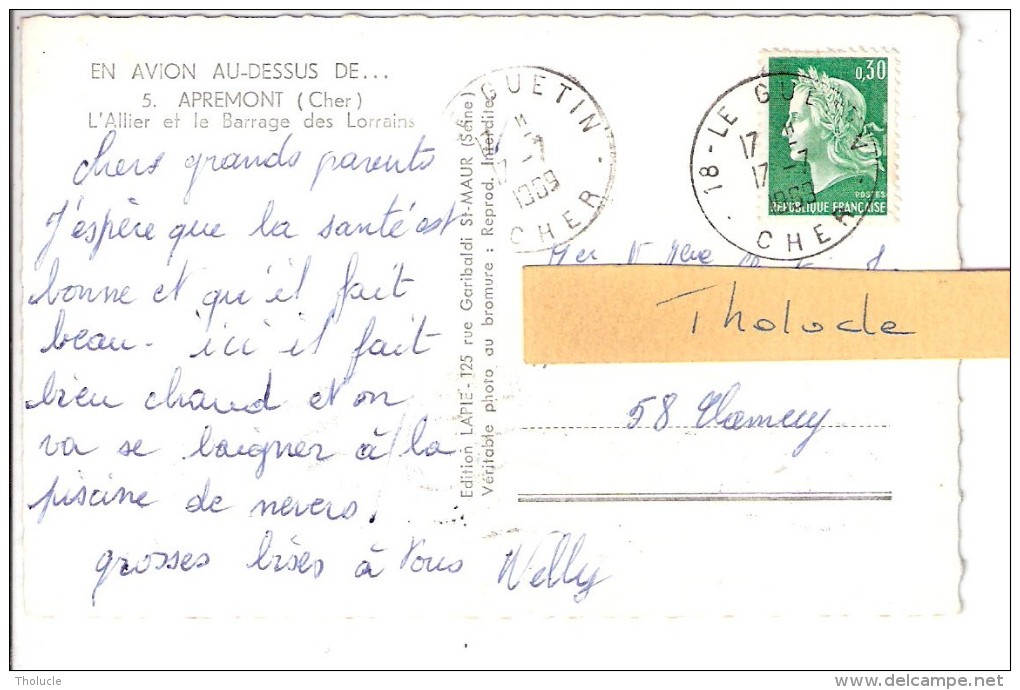 EN AVION AU-DESSUS DE...
5. APREMONT (Cher)
L'Allier et le Barrage des Lorrains
chers grands parents
J'espère que la santé est
bonne et qu'il fait
beau. ici il fait
bien chaud et on
va se baigner à la
piscine de nevers.
grosses bises à vous Willy
Edition LAPIE - 125 rue Garibaldi St-MAUR (Seine)
Véritable photo au bromure : Reprod. Interdite
GUETIN
1969
CHER
18 - LE GUETIN
17 H
17 - 7
1969
CHER
0,30
POSTES
REPUBLIQUE FRANÇAISE
Tholocle
58 Clamecy
Tholucle
delcampe.net